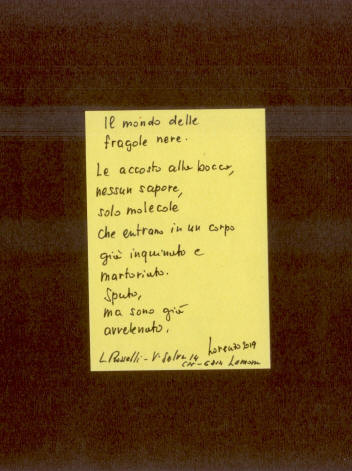 Il mondo delle
fragole nere.
Le accosto alla bocca,
nessun sapore,
solo molecole
che entrano in un corpo
già inquinato e
martoriato.
Sputo,
ma sono già
avvelenato.
Lorenzo 2019
L. Pusselli - V. Selva 14
CH-6814 Lamone